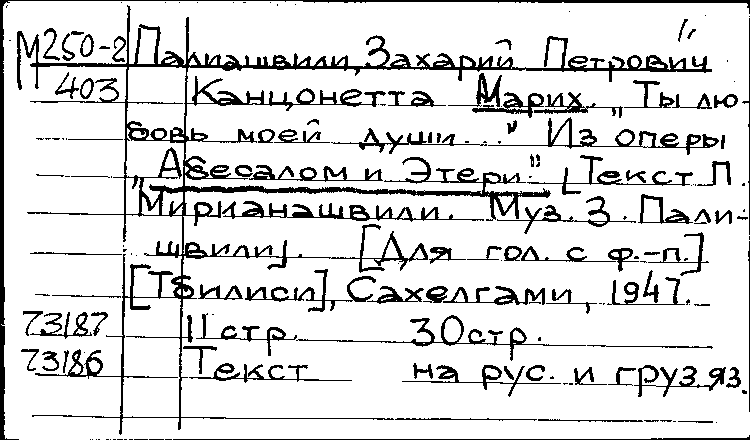 М250-2 Палиашвили, Захарий Петрович
403 Канцонетта Марих. „Ты лю-
бовь моей души..." Из оперы
„Абесалом и Этери". [Текст П.
Мирианашвили. Муз. З. Пали-
швили]. [Для гол. с ф.-п.]
[Тбилиси], Сахелгами, 1947.
73187 11 стр. 30 стр.
73186 Текст на рус. и груз. яз.